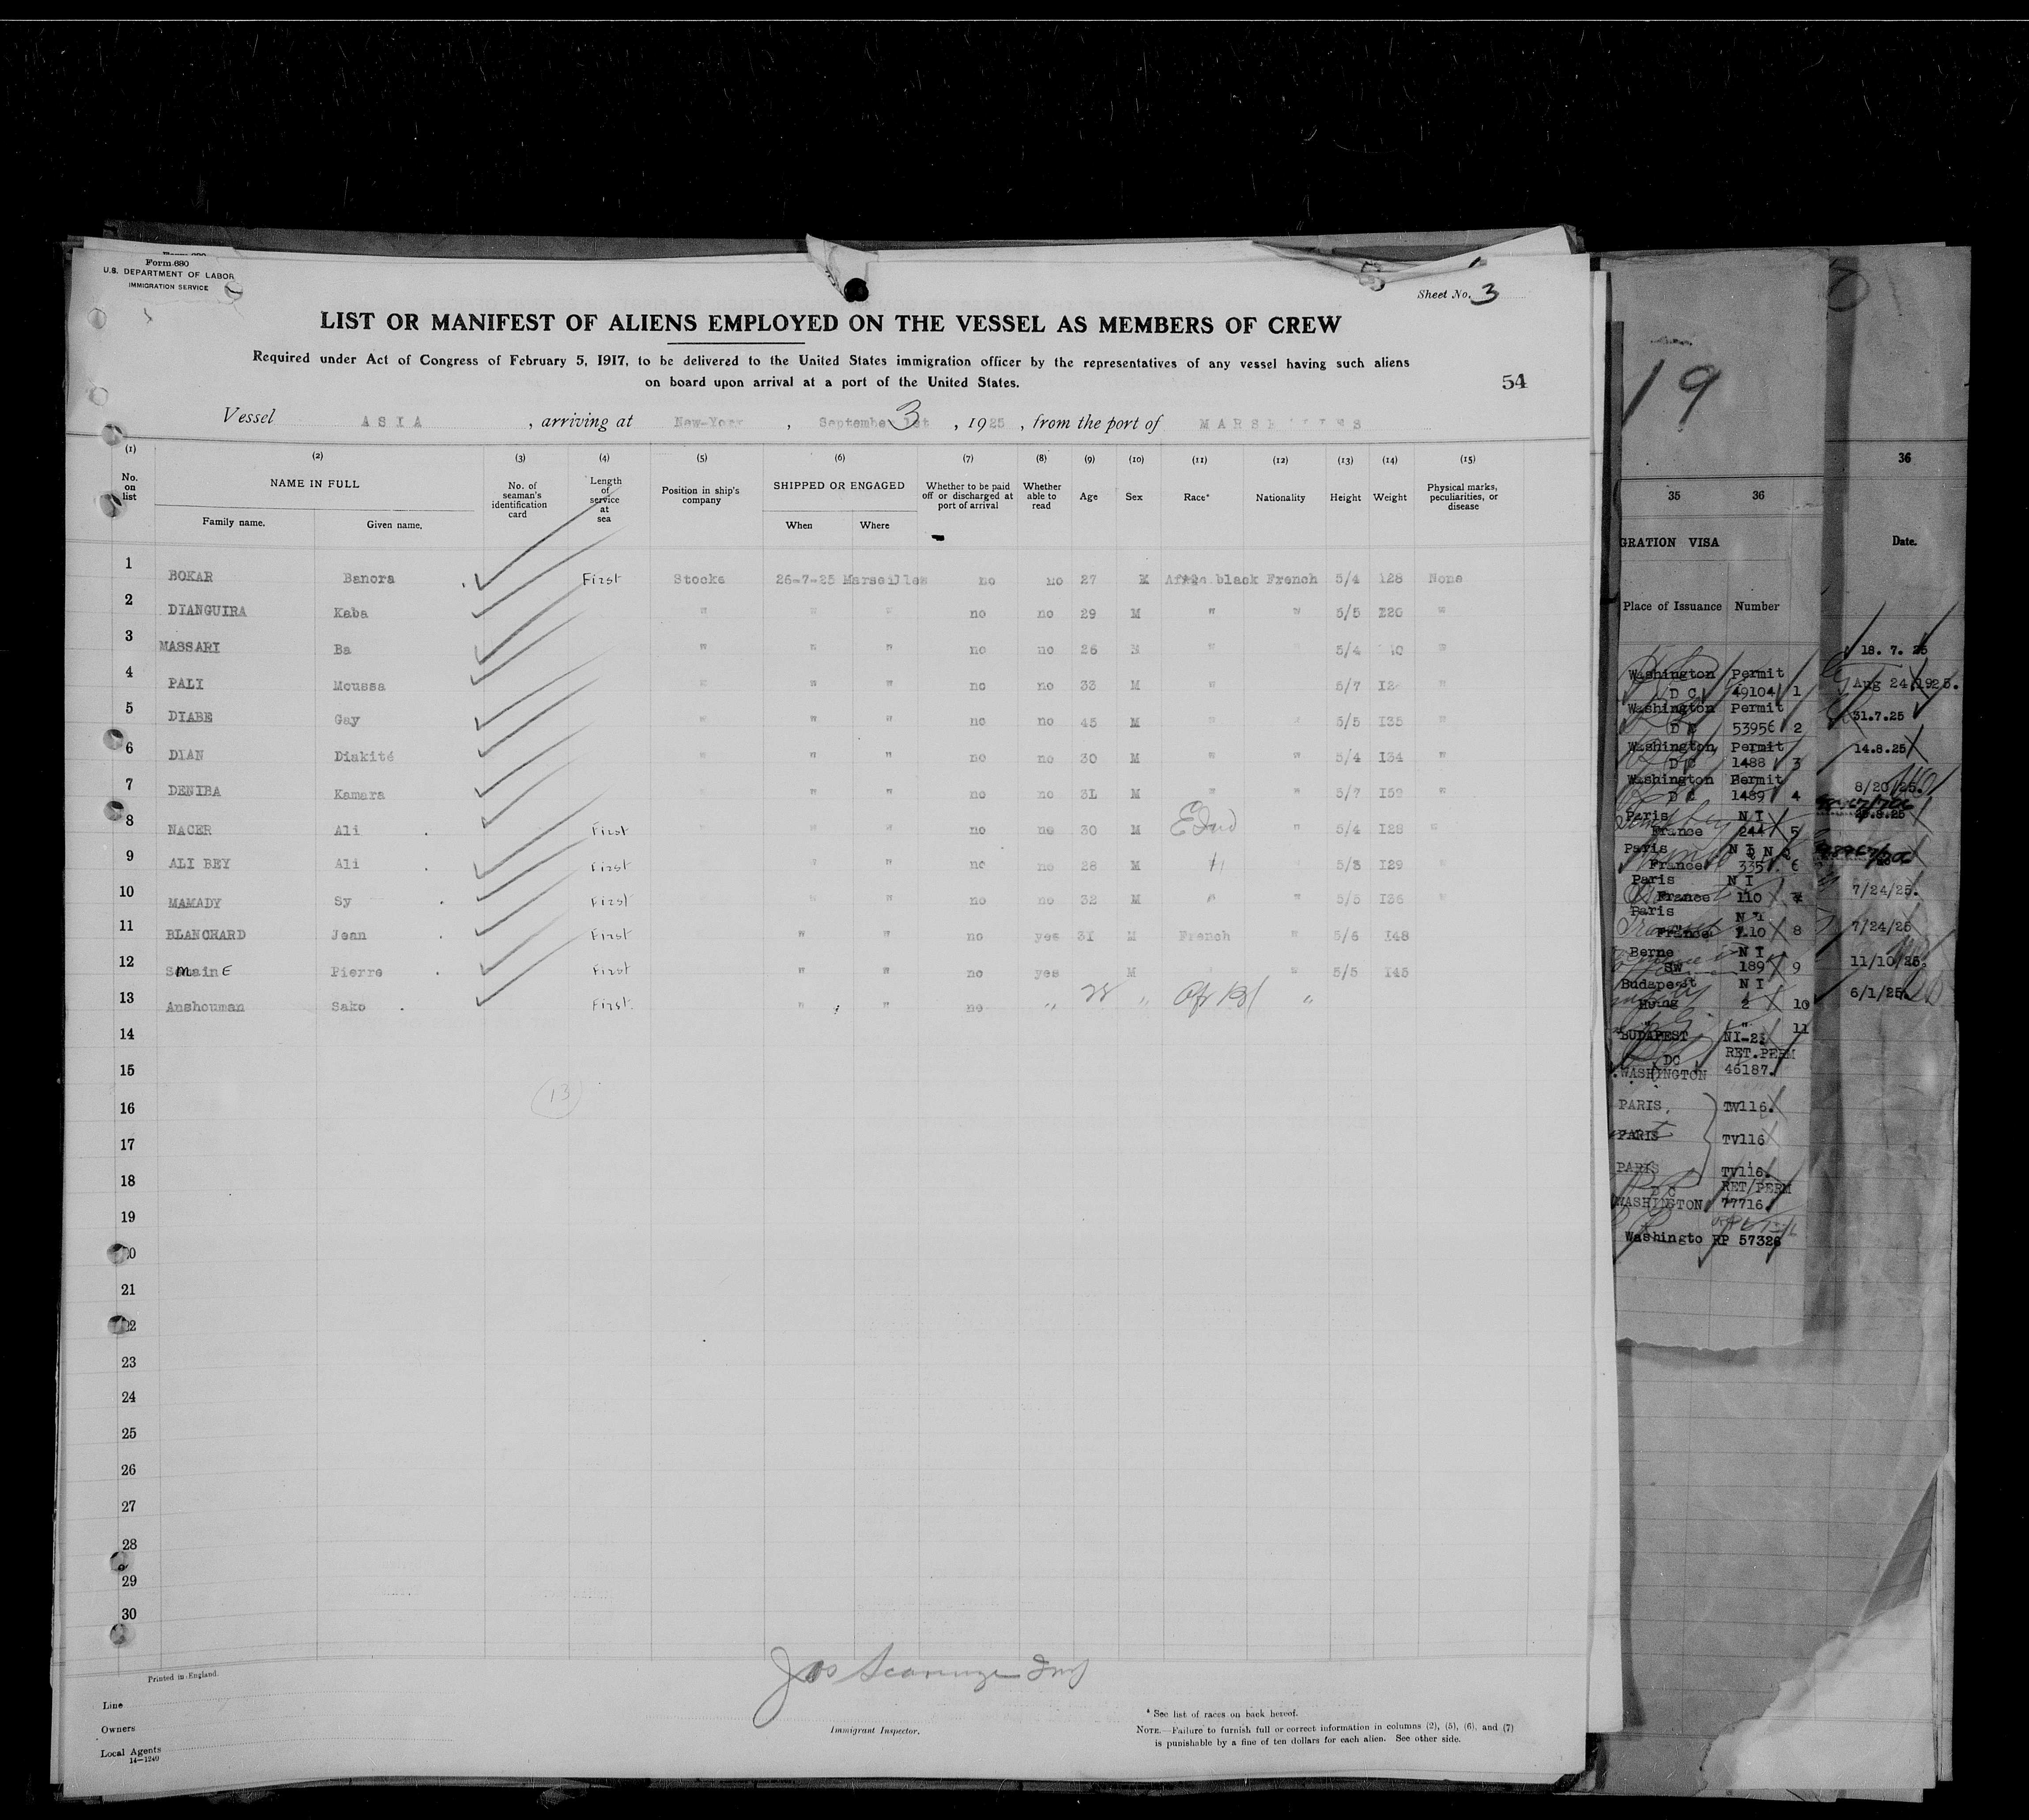 Form 680
U.S. DEPARTMENT OF LABOR
IMMIGRATION SERVICE
Sheet No. 3
LIST OR MANIFEST OF ALIENS EMPLOYED ON THE VESSEL AS MEMBERS OF CREW
Required under Act of Congress of February 5, 1917, to be delivered to the United States immigration officer by the representatives of any vessel having such aliens
on board upon arrival at a port of the United States.
54
Vessel ASIA , arriving at New-York , September 3 , 1925 , from the port of MARSEILLES
(1) (2) (3) (4) (5) (6) (7) (8) (9) (10) (11) (12) (13) (14) (15)
No. on list NAME IN FULL Family name. Given name. No. of seaman's identification card Length of service at sea Position in ship's company SHIPPED OR ENGAGED When Where Whether to be paid off or discharged at port of arrival Whether able to read Age Sex Race* Nationality Height Weight Physical marks, peculiarities, or disease
1 BOKAR Banora First Stocke 26-7-25 Marseilles no no 27 M black French 5/4 128 None
2 DIANGUIRA Kaba " " " no no 29 M " " 5/5 "
3 MASSARI Ba " " " no no 26 " 5/4 "
4 PALI Moussa " " " no no 33 M " 5/7 "
5 DIABE Gay " " " no no 45 M " " 5/5 I35 "
6 DIAN Diakité " " " no no 30 M " " 5/4 I34 "
7 DENIBA Kamara " " " no no 3L M " " 5/7 I59 "
8 NACER Ali First " " " no no 30 M " 5/4 I28 "
9 ALI BEY Ali First " " no no 28 M " 5/8 I29
10 MAMADY Sy First " " no no 32 M " " 5/5 I36 "
11 BLANCHARD Jean First " " no yes 3I M French " 5/6 I48
12 Pierre First " " no yes M " 5/5 I45
13 Anshouman Sako First " " no " " Af Bl "
14
15
16
17
18
19
20
21
22
23
24
25
26
27
28
29
30
13
Printed in England.
Line
Owners
Local Agents
14—1240
Immigrant Inspector.
* See list of races on back hereof.
NOTE.—Failure to furnish full or correct information in columns (2), (5), (6), and (7)
is punishable by a fine of ten dollars for each alien. See other side.
19
35 36
GRATION VISA
Place of Issuance Number
Washington Permit
D C 49104 1
Washington Permit
D C 53956 2
Washington Permit
D C 1488 3
Washington Permit
D C 1489 4
Paris N I
France 244 5
Paris N I
France 335 6
Paris N I
France 110
Paris N I
France 110 8
Berne N I
SW 189 9
Budapest N I
Hung 2 10
11
BUDAPEST NI-2
DC RET.PERM
WASHINGTON 46187.
PARIS. TV116.
PARIS TV116
PARIS TV116.
D C RET/PERM
WASHINGTON 77716.
Washingto RP 57326
36
Date.
18. 7. 25
Aug 24,1925.
31.7.25
14.8.25
8/20/25.
7/24/25.
7/24/25
11/10/25.
6/1/25.